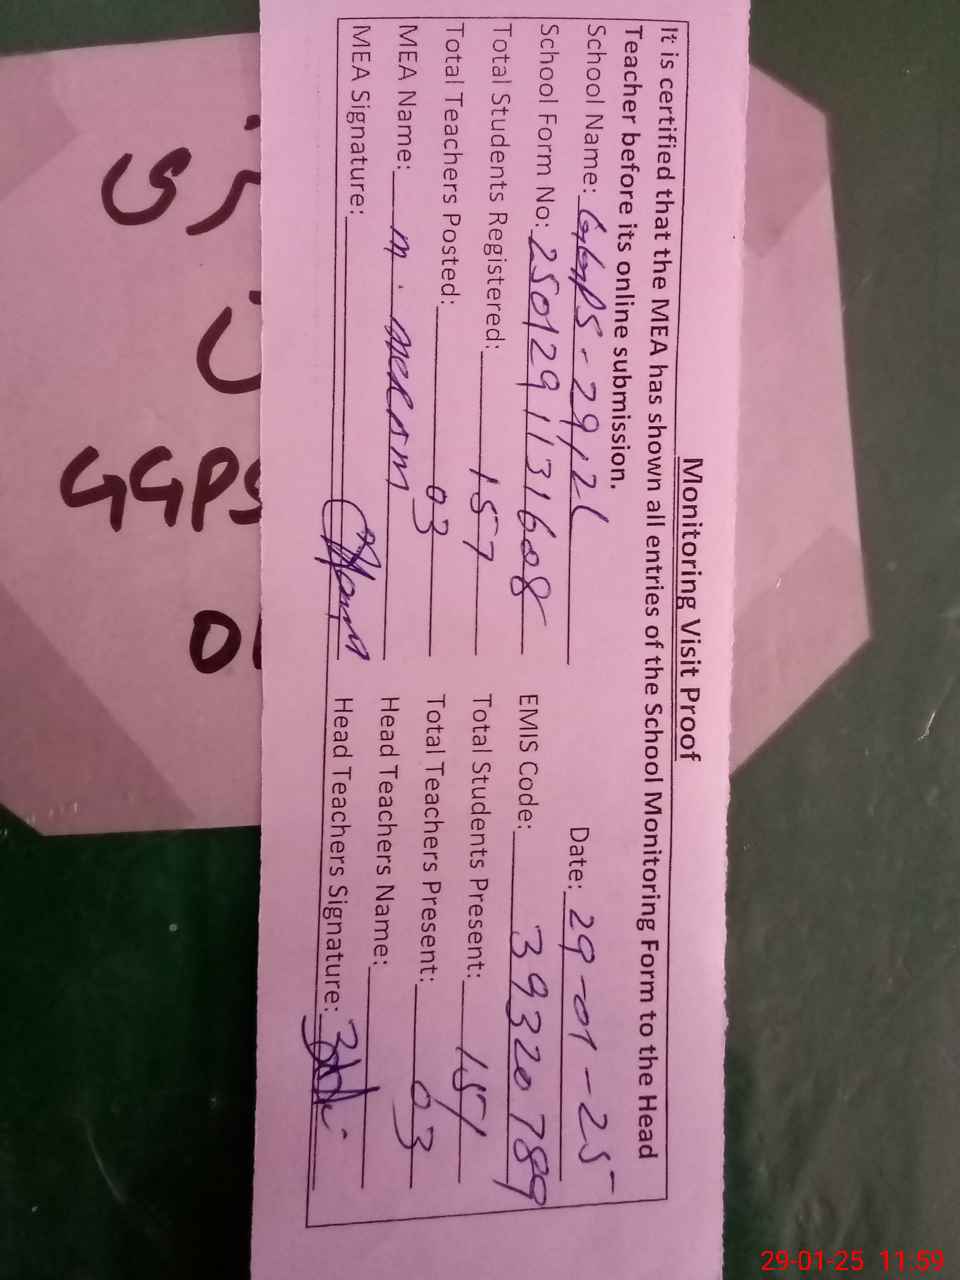 Monitoring Visit Proof
It is certified that the MEA has shown all entries of the School Monitoring Form to the Head
Teacher before its online submission.
School Name: GGPS-29/2L Date: 29-01-25
School Form No: 2501291131608 EMIS Code: 39320789
Total Students Registered: 157 Total Students Present: 151
Total Teachers Posted: 03 Total Teachers Present: 03
MEA Name: M. Head Teachers Name:
MEA Signature: Head Teachers Signature:
GGPS
29-01-25 11:59